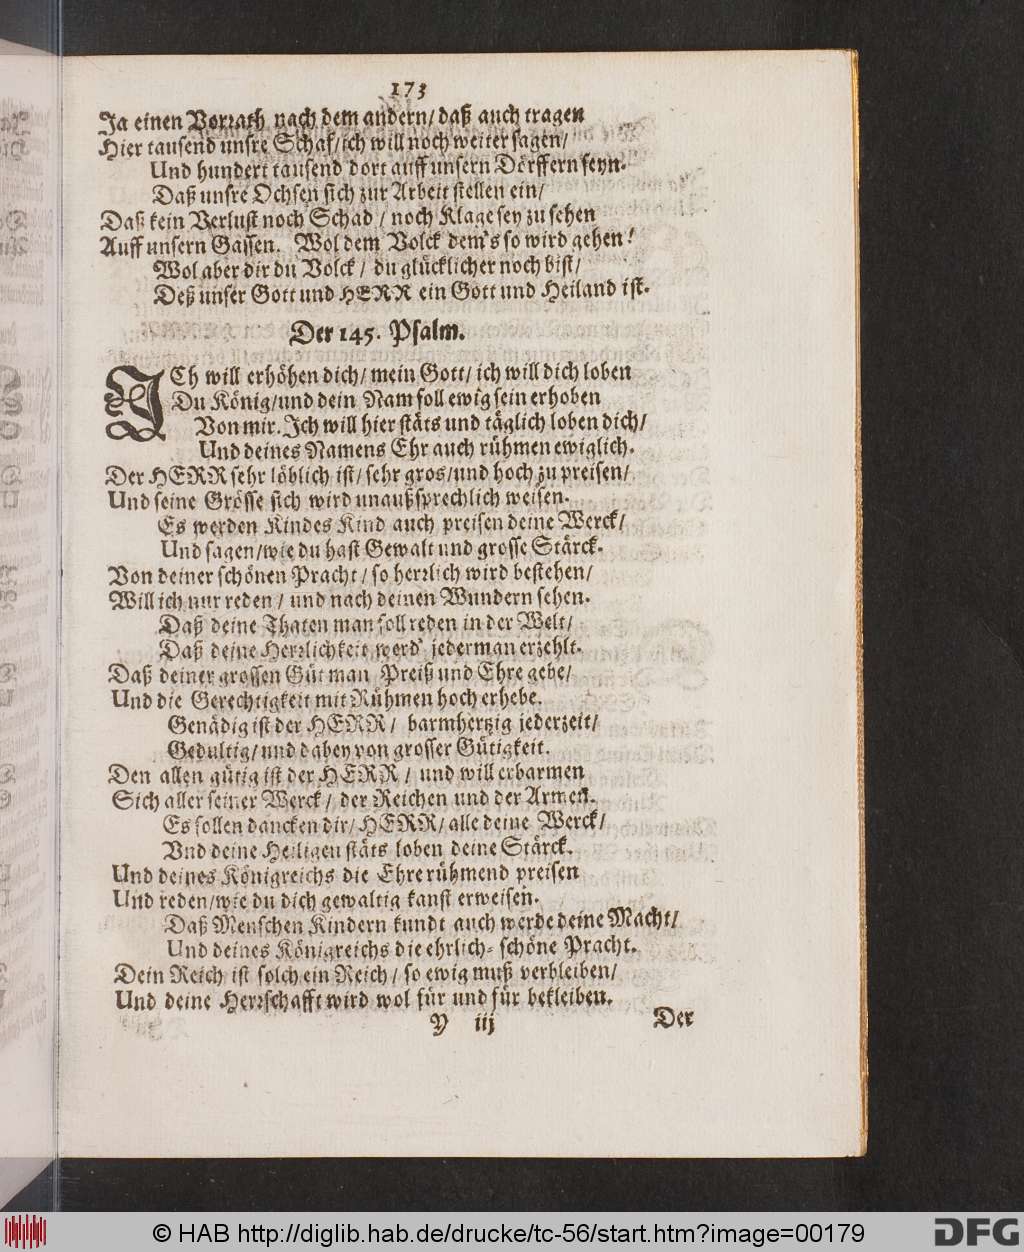 173
Ja einen Vorrath nach dem andern/ daß auch tragen
Hier tausend unsre Schaf/ ich will noch weiter sagen/
Und hundert tausend dort auff unsern Dörffern seyn.
Daß unsre Ochsen sich zur Arbeit stellen ein/
Daß kein Verlust noch Schad / noch Klage sey zu sehen
Auff unsern Gassen. Wol dem Volck dem's so wird gehen!
Wol aber dir du Volck / du glücklicher noch bist/
Deß unser Gott und HERR ein Gott und Heiland ist.
Der 145. Psalm.
ICh will erhöhen dich/ mein Gott/ ich will dich loben
Du König/ und dein Nam soll ewig sein erhoben
Von mir. Ich will hier stäts und täglich loben dich/
Und deines Namens Ehr auch rühmen ewiglich.
Der HERR sehr löblich ist/ sehr gros/ und hoch zu preisen/
Und seine Grösse sich wird unaußsprechlich weisen.
Es werden Kindes Kind auch preisen deine Werck/
Und sagen/ wie du hast Gewalt und grosse Stärck.
Von deiner schönen Pracht / so herrlich wird bestehen/
Will ich nur reden / und nach deinen Wundern sehen.
Daß deine Thaten man soll reden in der Welt/
Daß deine Herrlichkeit werd' jederman erzehlt.
Daß deiner grossen Güt man Preiß und Ehre gebe/
Und die Gerechtigkeit mit Rühmen hoch erhebe.
Genädig ist der HERR / barmhertzig jederzeit/
Gedultig/ und dabey von grosser Gütigkeit.
Den allen gütig ist der HERR / und will erbarmen
Sich aller seiner Werck / der Reichen und der Armen.
Es sollen dancken dir/ HERR/ alle deine Werck/
Vnd deine Heiligen stäts loben deine Stärck.
Und deines Königreichs die Ehre rühmend preisen
Und reden/ wie du dich gewaltig kanst erweisen.
Daß Menschen Kindern kundt auch werde deine Macht/
Und deines Königreichs die ehrlich- schöne Pracht.
Dein Reich ist solch ein Reich / so ewig muß verbleiben/
Und deine Herrschafft wird wol für und für bekleiben.
Y iij Der
© HAB http://diglib.hab.de/drucke/tc-56/start.htm?image=00179
DFG